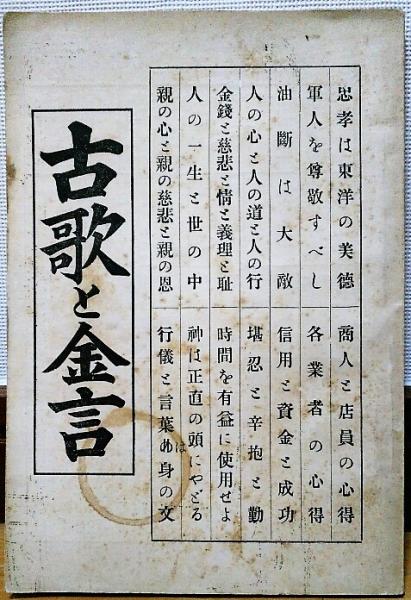 忠孝は東洋の美德
軍人を尊敬すべし
油斷は大敵
人の心と人の道と人の行
金錢と慈悲と情と義理と耻
人の一生と世の中
親の心と親の慈悲と親の恩
商人と店員の心得
各業者の心得
信用と資金と成功
堪忍と辛抱と勤
時間を有益に使用せよ
神は正直の頭にやどる
行儀と言葉は身の文
古歌と金言